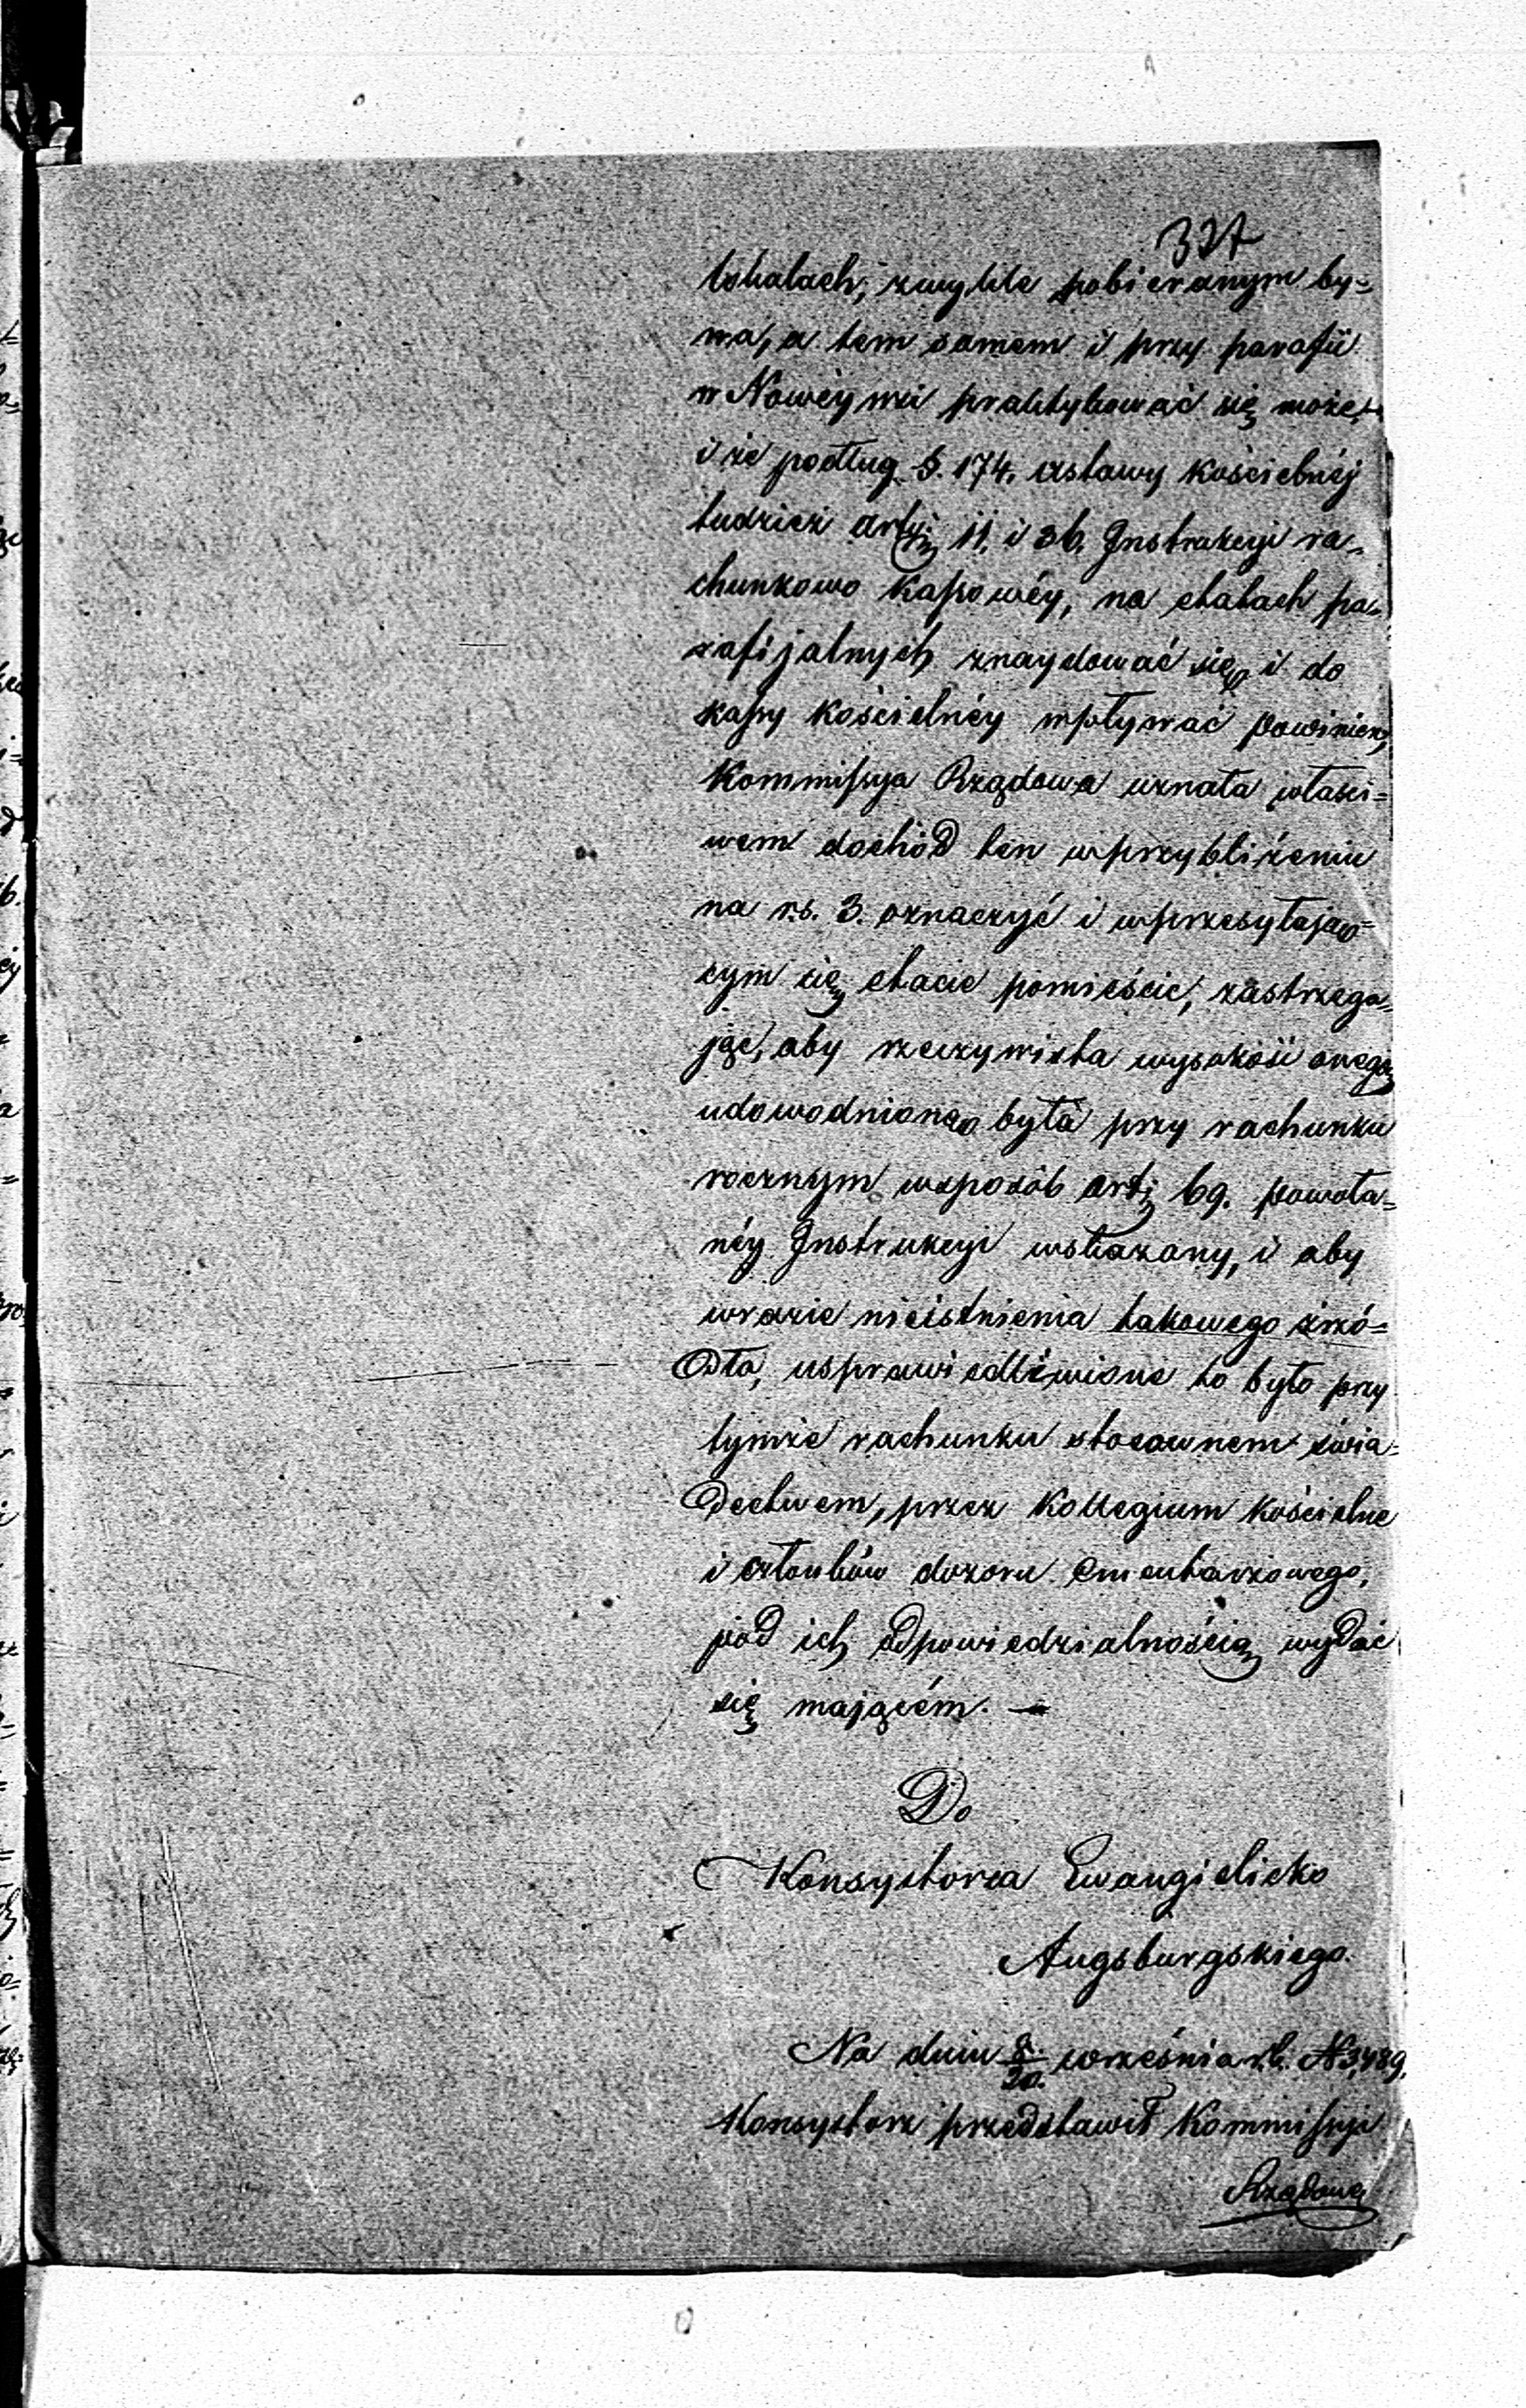 337
lokalach, zwykle pobieranym by=
wa, a tem samem i przy parafii
w Nowéymci praktykować się może,
i że podług §. 174. Ustawy kościelnéj
tudzież art. 11. i 36. Instrukcyi ra=
chunkowo Kassowéy, na etatach pa=
rafijalnych znaydować się i do
kassy kościelnéy wpływać powinien,
Kommissya Rządowa uznała właści=
wem dochód ten w przybliżeniu
na r.s. 3. oznaczyć i w przesyłają=
cym się etacie pomieścić, zastrzega=
jąc, aby rzeczywista wysokość onego
udowodniona była przy rachunku
rocznym w sposób art. 69. powoła=
néy Instrukcyi wskazany, i aby
w razie nieistnienia takowego źró=
dła, usprawiedliwione to było przy
tymże rachunku stosownem świa=
dectwem, przez Kollegium kościelne
i członków dozoru Cmentarzowego,
pod ich odpowiedzialnością wydać
się mającém. —
Do
Konsystorza Ewangielicko
Augsburgskiego.
Na dniu 8/20. września r.b. N 3489.
Konsystorz przedstawił Kommissyi
Rządowej